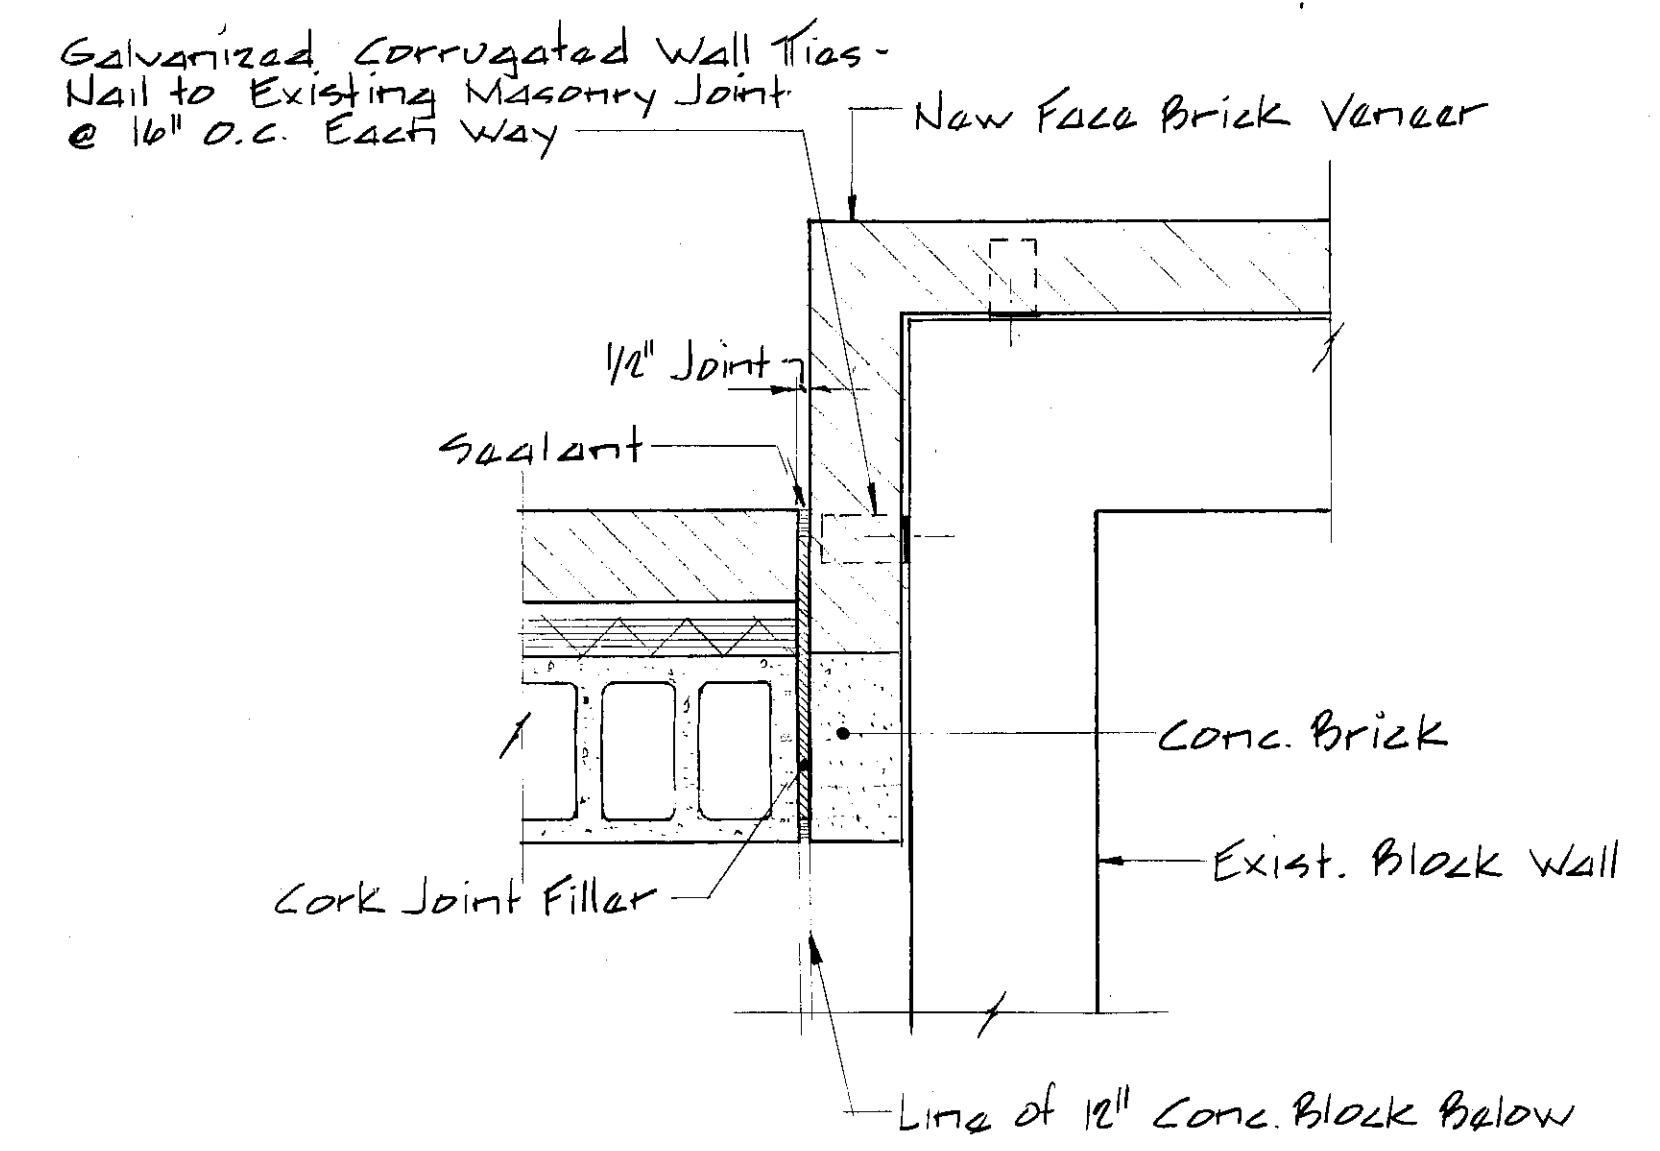 Galvanized Corrugated Wall Ties-
Nail to Existing Masonry Joint
@ 16" O.C. Each Way
New Face Brick Veneer
1/2" Joint
Sealant
Conc. Brick
Exist. Block Wall
Cork Joint Filler
Line of 12" Conc. Block Below